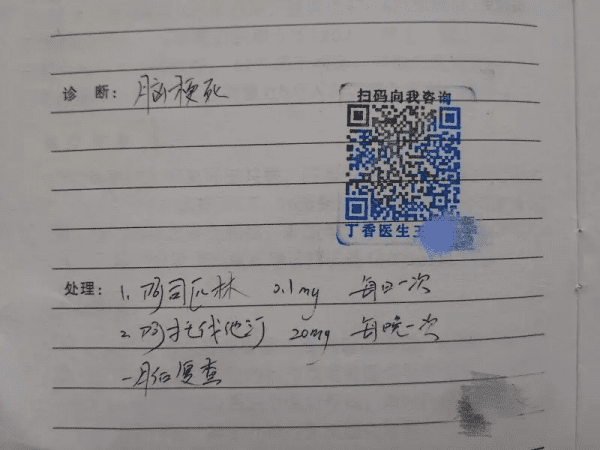 诊 断：脑梗死
扫码向我咨询
丁香医生王
处理：1. 阿司匹林 0.1mg 每日一次
2. 阿托伐他汀 20mg 每晚一次
一月后复查